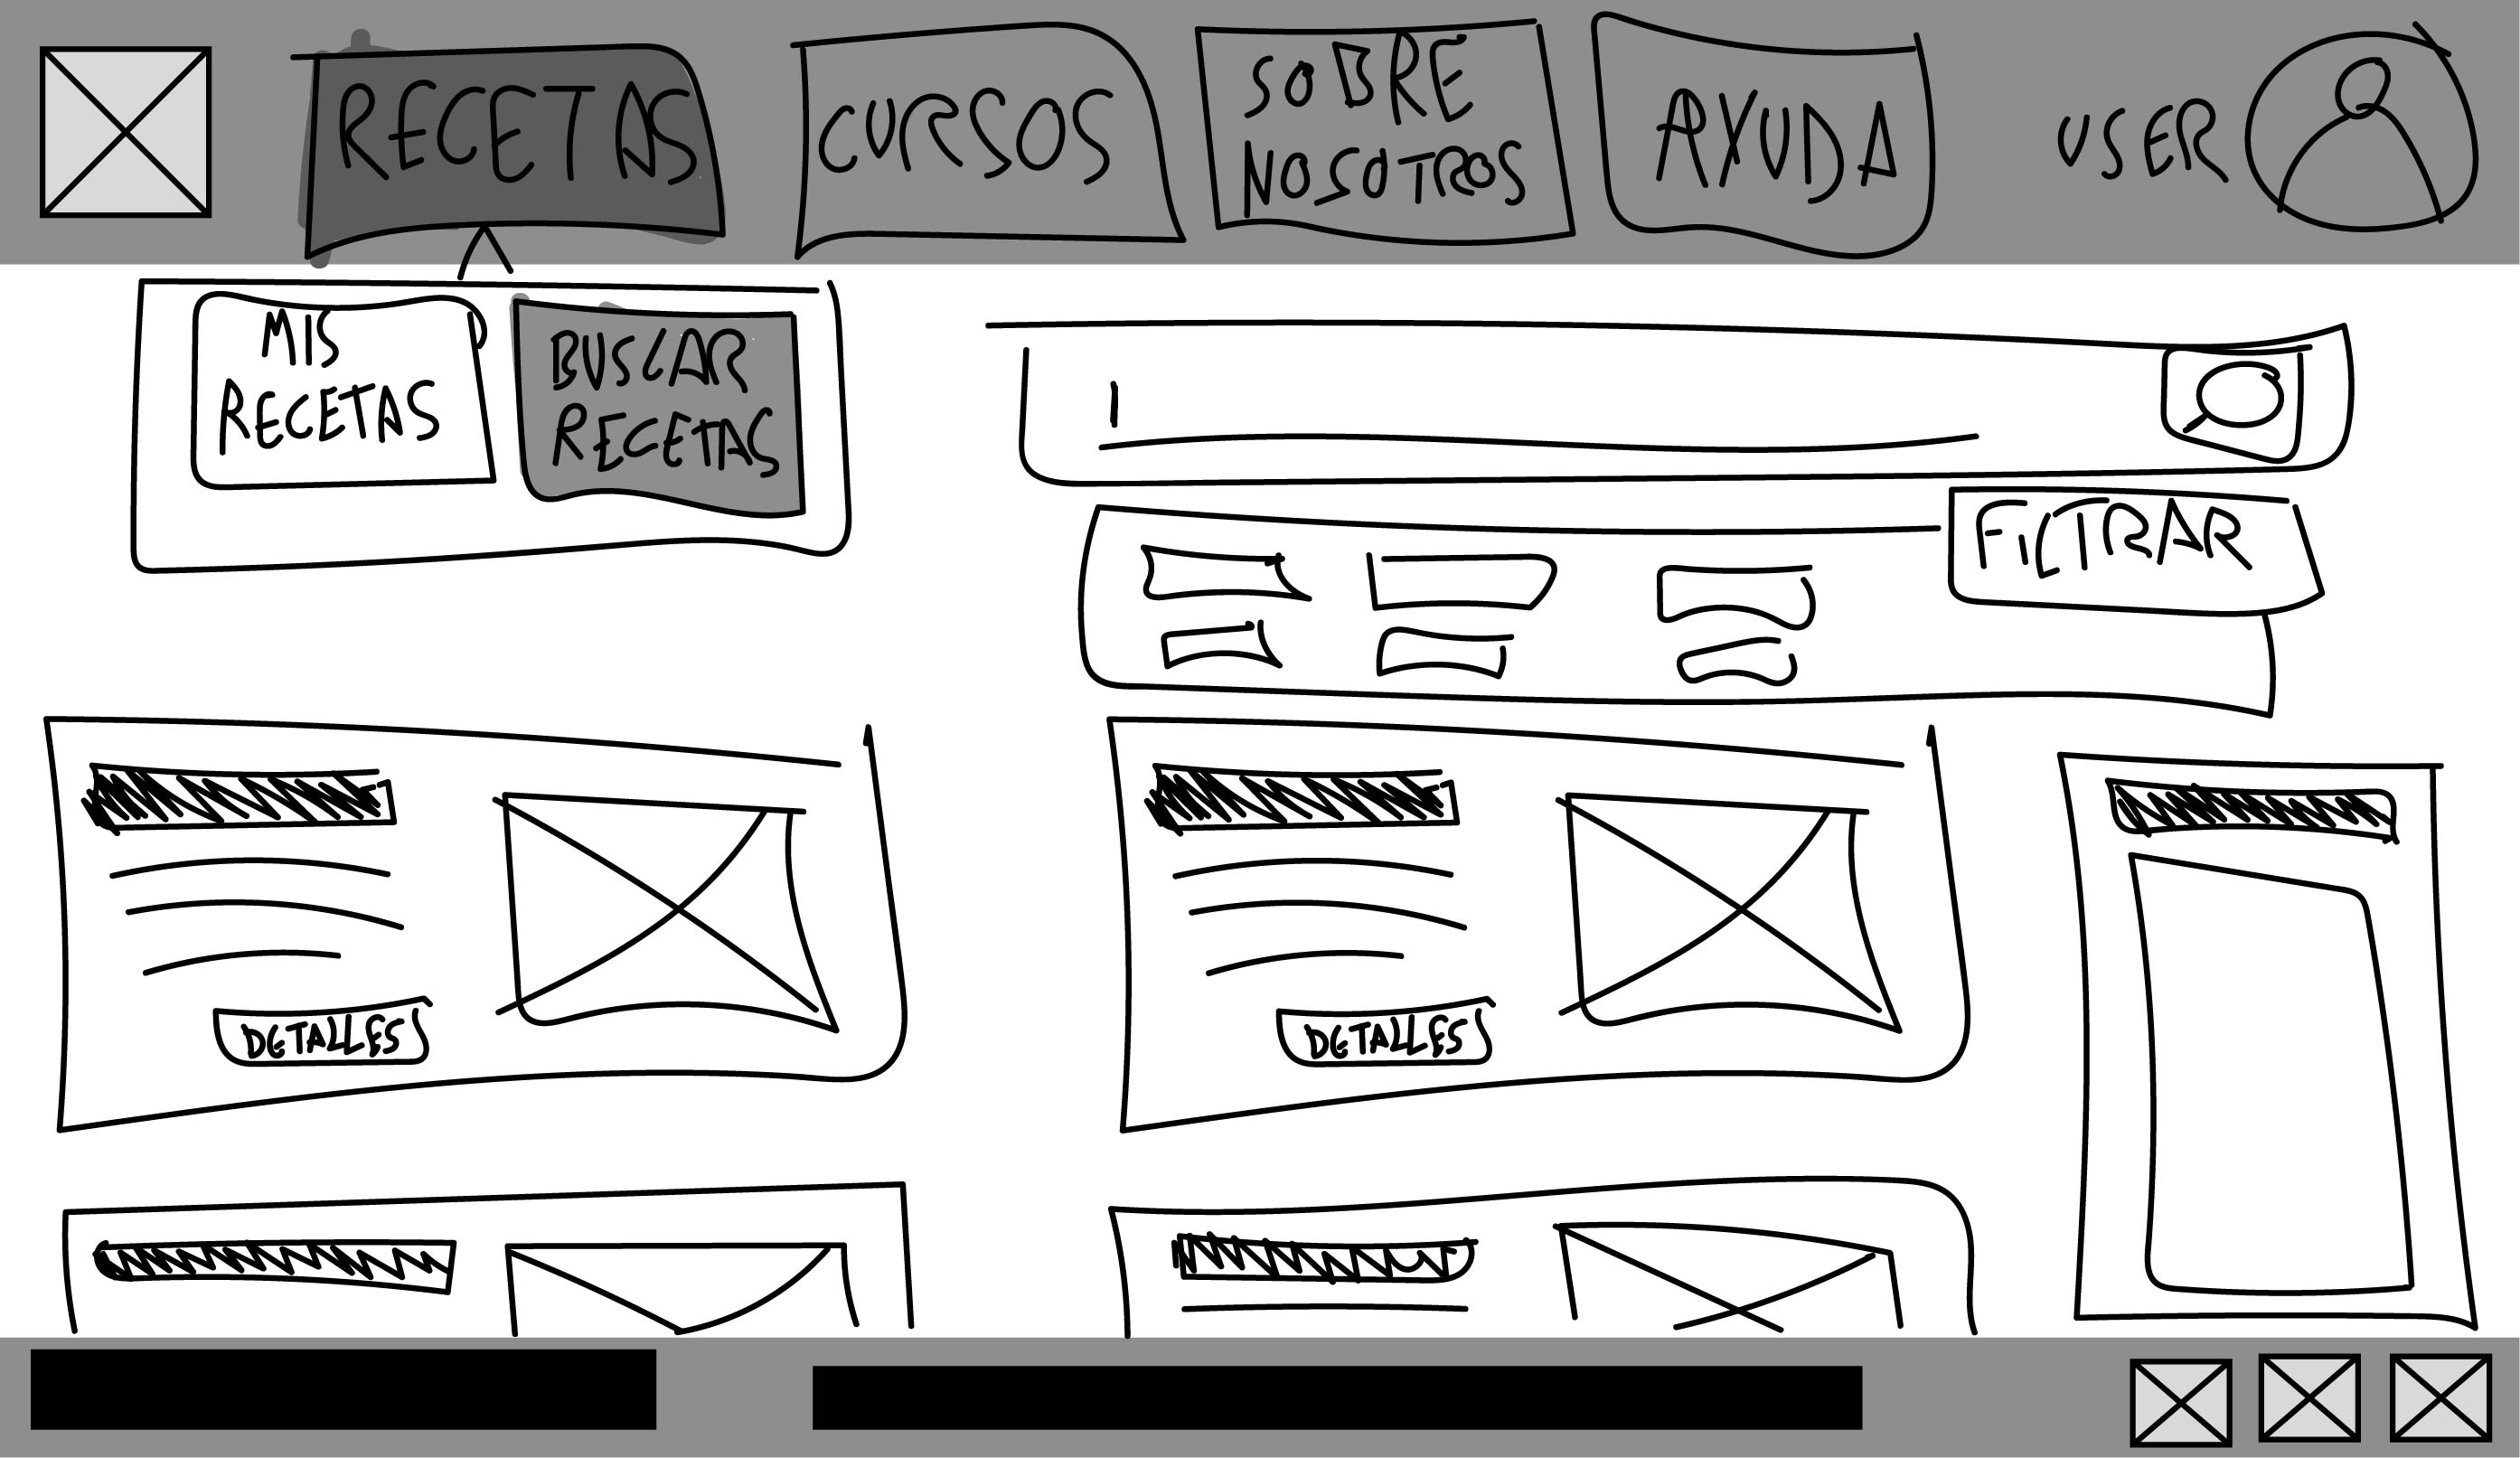 RECETAS
CURSOS
SOBRE
NOSOTROS
AYUDA
USER
MIS
RECETAS
BUSCAR
RECETAS
FILTRAR
DETALLES
DETALLES